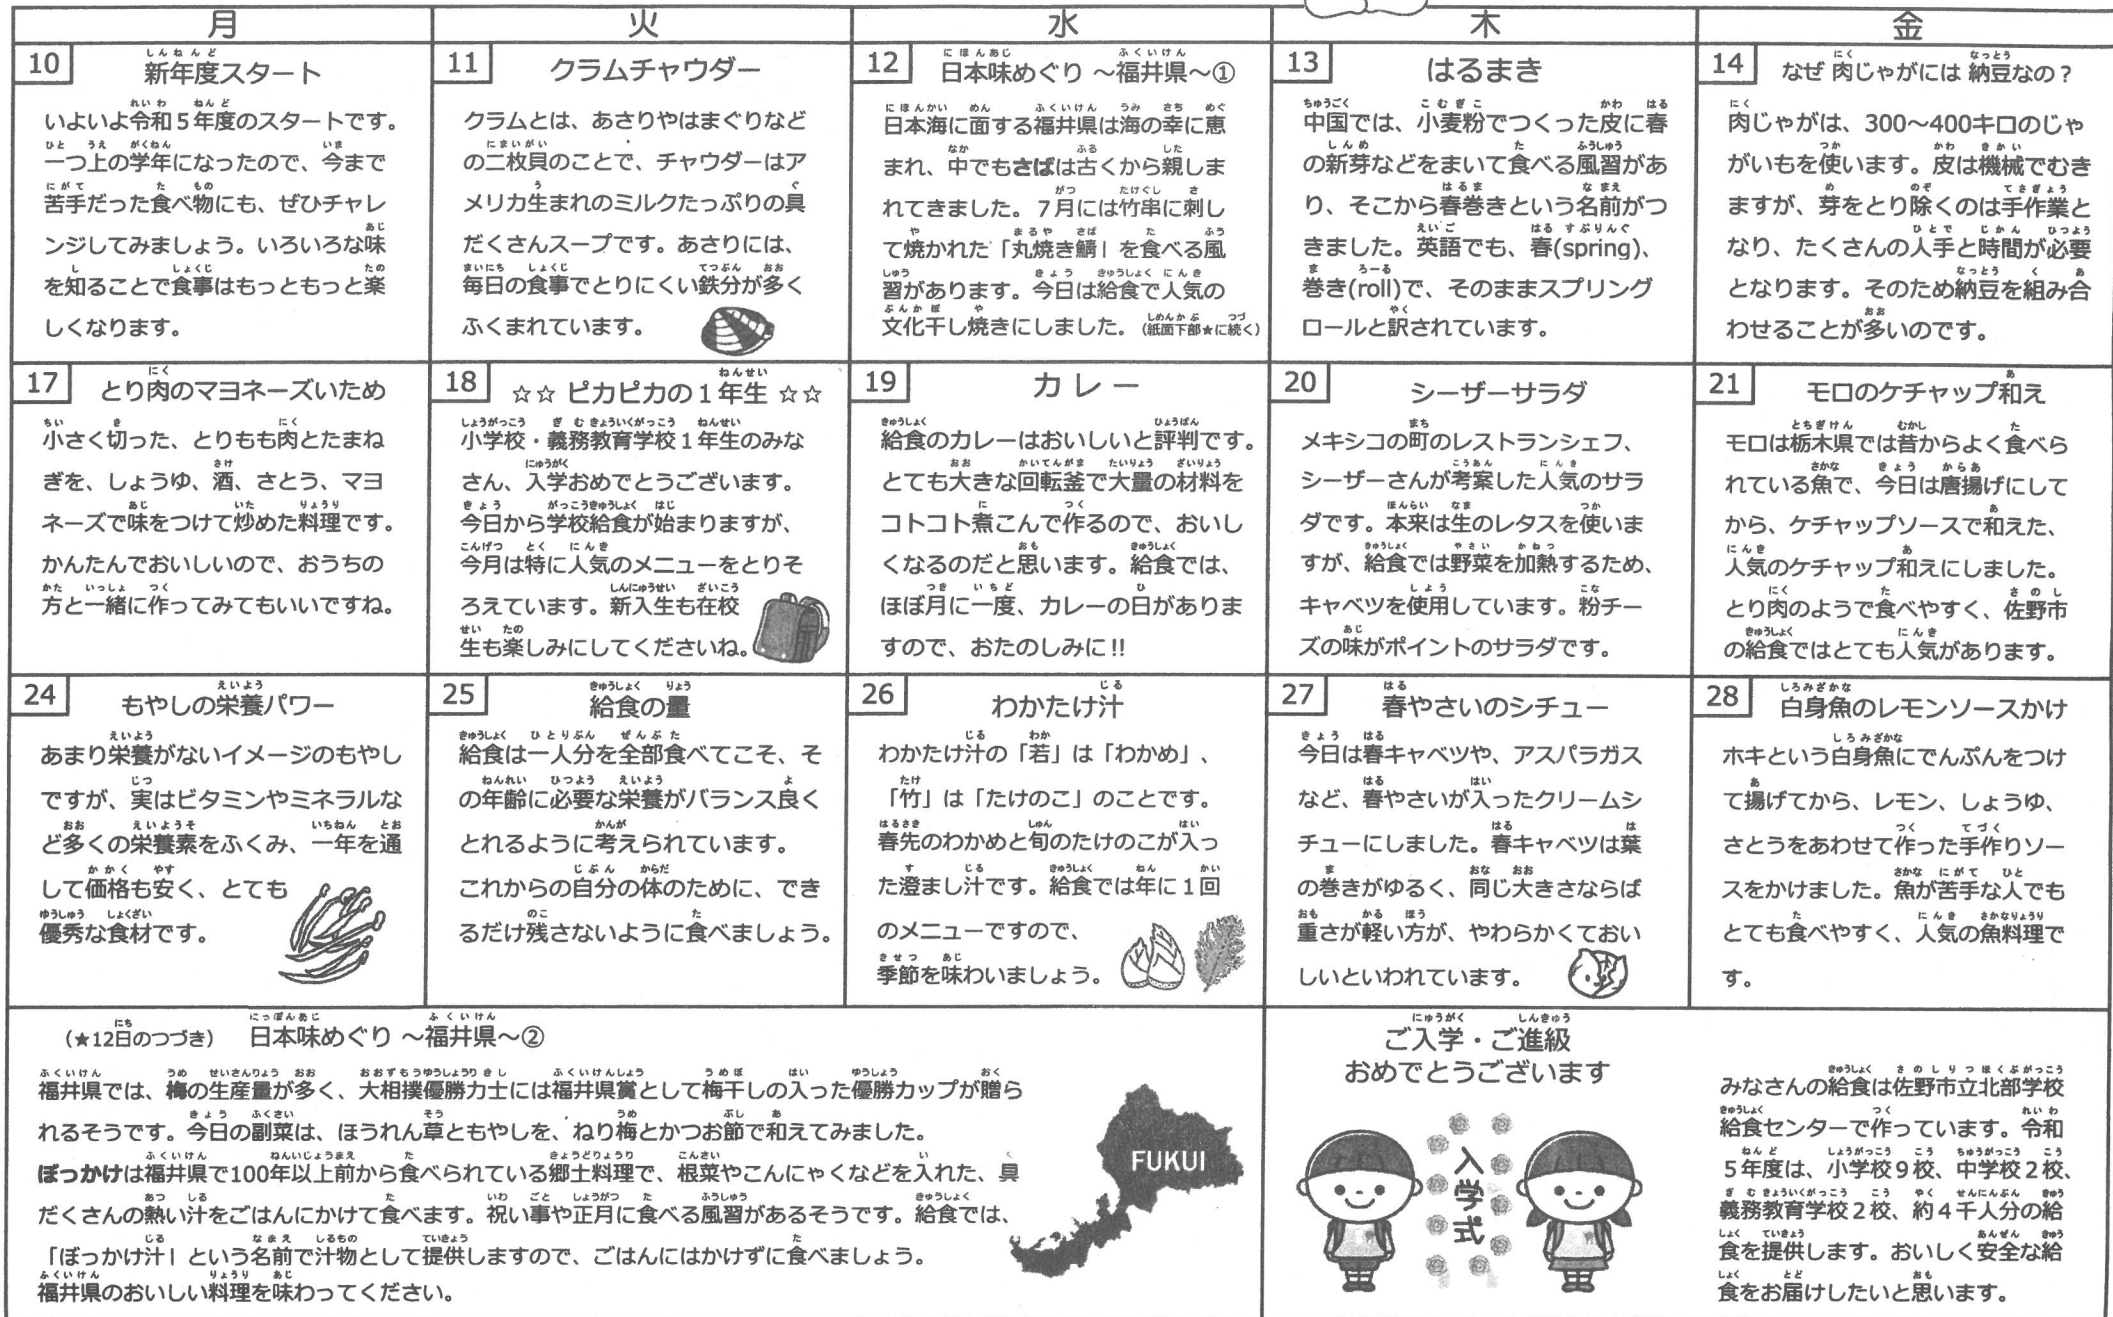 月
火
水
木
金
10
新年度スタート
いよいよ令和5年度のスタートです。
一つ上の学年になったので、今まで
苦手だった食べ物にも、ぜひチャレ
ンジしてみましょう。いろいろな味
を知ることで食事はもっともっと楽
しくなります。
11
クラムチャウダー
クラムとは、あさりやはまぐりなど
の二枚貝のことで、チャウダーはア
メリカ生まれのミルクたっぷりの具
だくさんスープです。あさりには、
毎日の食事でとりにくい鉄分が多く
ふくまれています。
12
日本味めぐり ～福井県～①
日本海に面する福井県は海の幸に恵
まれ、中でもさばは古くから親しま
れてきました。7月には竹串に刺し
て焼かれた「丸焼き鯖」を食べる風
習があります。今日は給食で人気の
文化干し焼きにしました。(紙面下部★に続く)
13
はるまき
中国では、小麦粉でつくった皮に春
の新芽などをまいて食べる風習があ
り、そこから春巻きという名前がつ
きました。英語でも、春(spring)、
巻き(roll)で、そのままスプリング
ロールと訳されています。
14
なぜ 肉じゃがには 納豆なの？
肉じゃがは、300～400キロのじゃ
がいもを使います。皮は機械でむき
ますが、芽をとり除くのは手作業と
なり、たくさんの人手と時間が必要
となります。そのため納豆を組み合
わせることが多いのです。
17
とり肉のマヨネーズいため
小さく切った、とりもも肉とたまね
ぎを、しょうゆ、酒、さとう、マヨ
ネーズで味をつけて炒めた料理です。
かんたんでおいしいので、おうちの
方と一緒に作ってみてもいいですね。
18
☆☆ ピカピカの1年生 ☆☆
小学校・義務教育学校1年生のみな
さん、入学おめでとうございます。
今日から学校給食が始まりますが、
今月は特に人気のメニューをとりそ
ろえています。新入生も在校
生も楽しみにしてくださいね。
19
カレー
給食のカレーはおいしいと評判です。
とても大きな回転釜で大量の材料を
コトコト煮こんで作るので、おいし
くなるのだと思います。給食では、
ほぼ月に一度、カレーの日がありま
すので、おたのしみに!!
20
シーザーサラダ
メキシコの町のレストランシェフ、
シーザーさんが考案した人気のサラ
ダです。本来は生のレタスを使いま
すが、給食では野菜を加熱するため、
キャベツを使用しています。粉チー
ズの味がポイントのサラダです。
21
モロのケチャップ和え
モロは栃木県では昔からよく食べら
れている魚で、今日は唐揚げにして
から、ケチャップソースで和えた、
人気のケチャップ和えにしました。
とり肉のようで食べやすく、佐野市
の給食ではとても人気があります。
24
もやしの栄養パワー
あまり栄養がないイメージのもやし
ですが、実はビタミンやミネラルな
ど多くの栄養素をふくみ、一年を通
して価格も安く、とても
優秀な食材です。
25
給食の量
給食は一人分を全部食べてこそ、そ
の年齢に必要な栄養がバランス良く
とれるように考えられています。
これからの自分の体のために、でき
るだけ残さないように食べましょう。
26
わかたけ汁
わかたけ汁の「若」は「わかめ」、
「竹」は「たけのこ」のことです。
春先のわかめと旬のたけのこが入っ
た澄まし汁です。給食では年に1回
のメニューですので、
季節を味わいましょう。
27
春やさいのシチュー
今日は春キャベツや、アスパラガス
など、春やさいが入ったクリームシ
チューにしました。春キャベツは葉
の巻きがゆるく、同じ大きさならば
重さが軽い方が、やわらかくておい
しいといわれています。
28
白身魚のレモンソースかけ
ホキという白身魚にでんぷんをつけ
て揚げてから、レモン、しょうゆ、
さとうをあわせて作った手作りソー
スをかけました。魚が苦手な人でも
とても食べやすく、人気の魚料理で
す。
(★12日のつづき) 日本味めぐり ～福井県～②
福井県では、梅の生産量が多く、大相撲優勝力士には福井県賞として梅干しの入った優勝カップが贈ら
れるそうです。今日の副菜は、ほうれん草ともやしを、ねり梅とかつお節で和えてみました。
ぼっかけは福井県で100年以上前から食べられている郷土料理で、根菜やこんにゃくなどを入れた、具
だくさんの熱い汁をごはんにかけて食べます。祝い事や正月に食べる風習があるそうです。給食では、
「ぼっかけ汁」という名前で汁物として提供しますので、ごはんにはかけずに食べましょう。
福井県のおいしい料理を味わってください。
FUKUI
ご入学・ご進級
おめでとうございます
入学式
みなさんの給食は佐野市立北部学校
給食センターで作っています。令和
5年度は、小学校9校、中学校2校、
義務教育学校2校、約4千人分の給
食を提供します。おいしく安全な給
食をお届けしたいと思います。